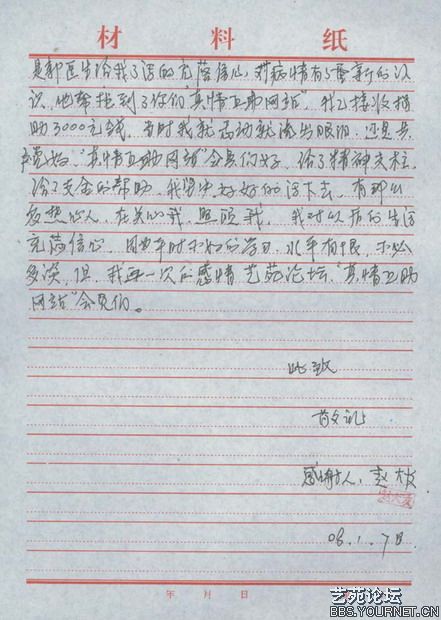 材料纸
是郭医生给我了活的充落信心,对病情有了重新的认
识,他帮找到了你们"真情互助网站",我已接收捐
助3000元钱,当时我就感动就流出眼泪,还是共
产党好,"真情互助网站"会员们好,给了精神支柱,
给了支金的帮助,我坚决好好的活下去,有那么
多热心人,在关心我,照顾我,我对以后的生活
充落信心,因由平时不好的学习,水平有限,不必
多谈,但,我再一次的感情艺苑论坛,"真情互助
网站"会员们。
此致
敬礼
感谢人:赵枝
08.1.7日
年 月 日
艺苑论坛
BBS.YOURNET.CN